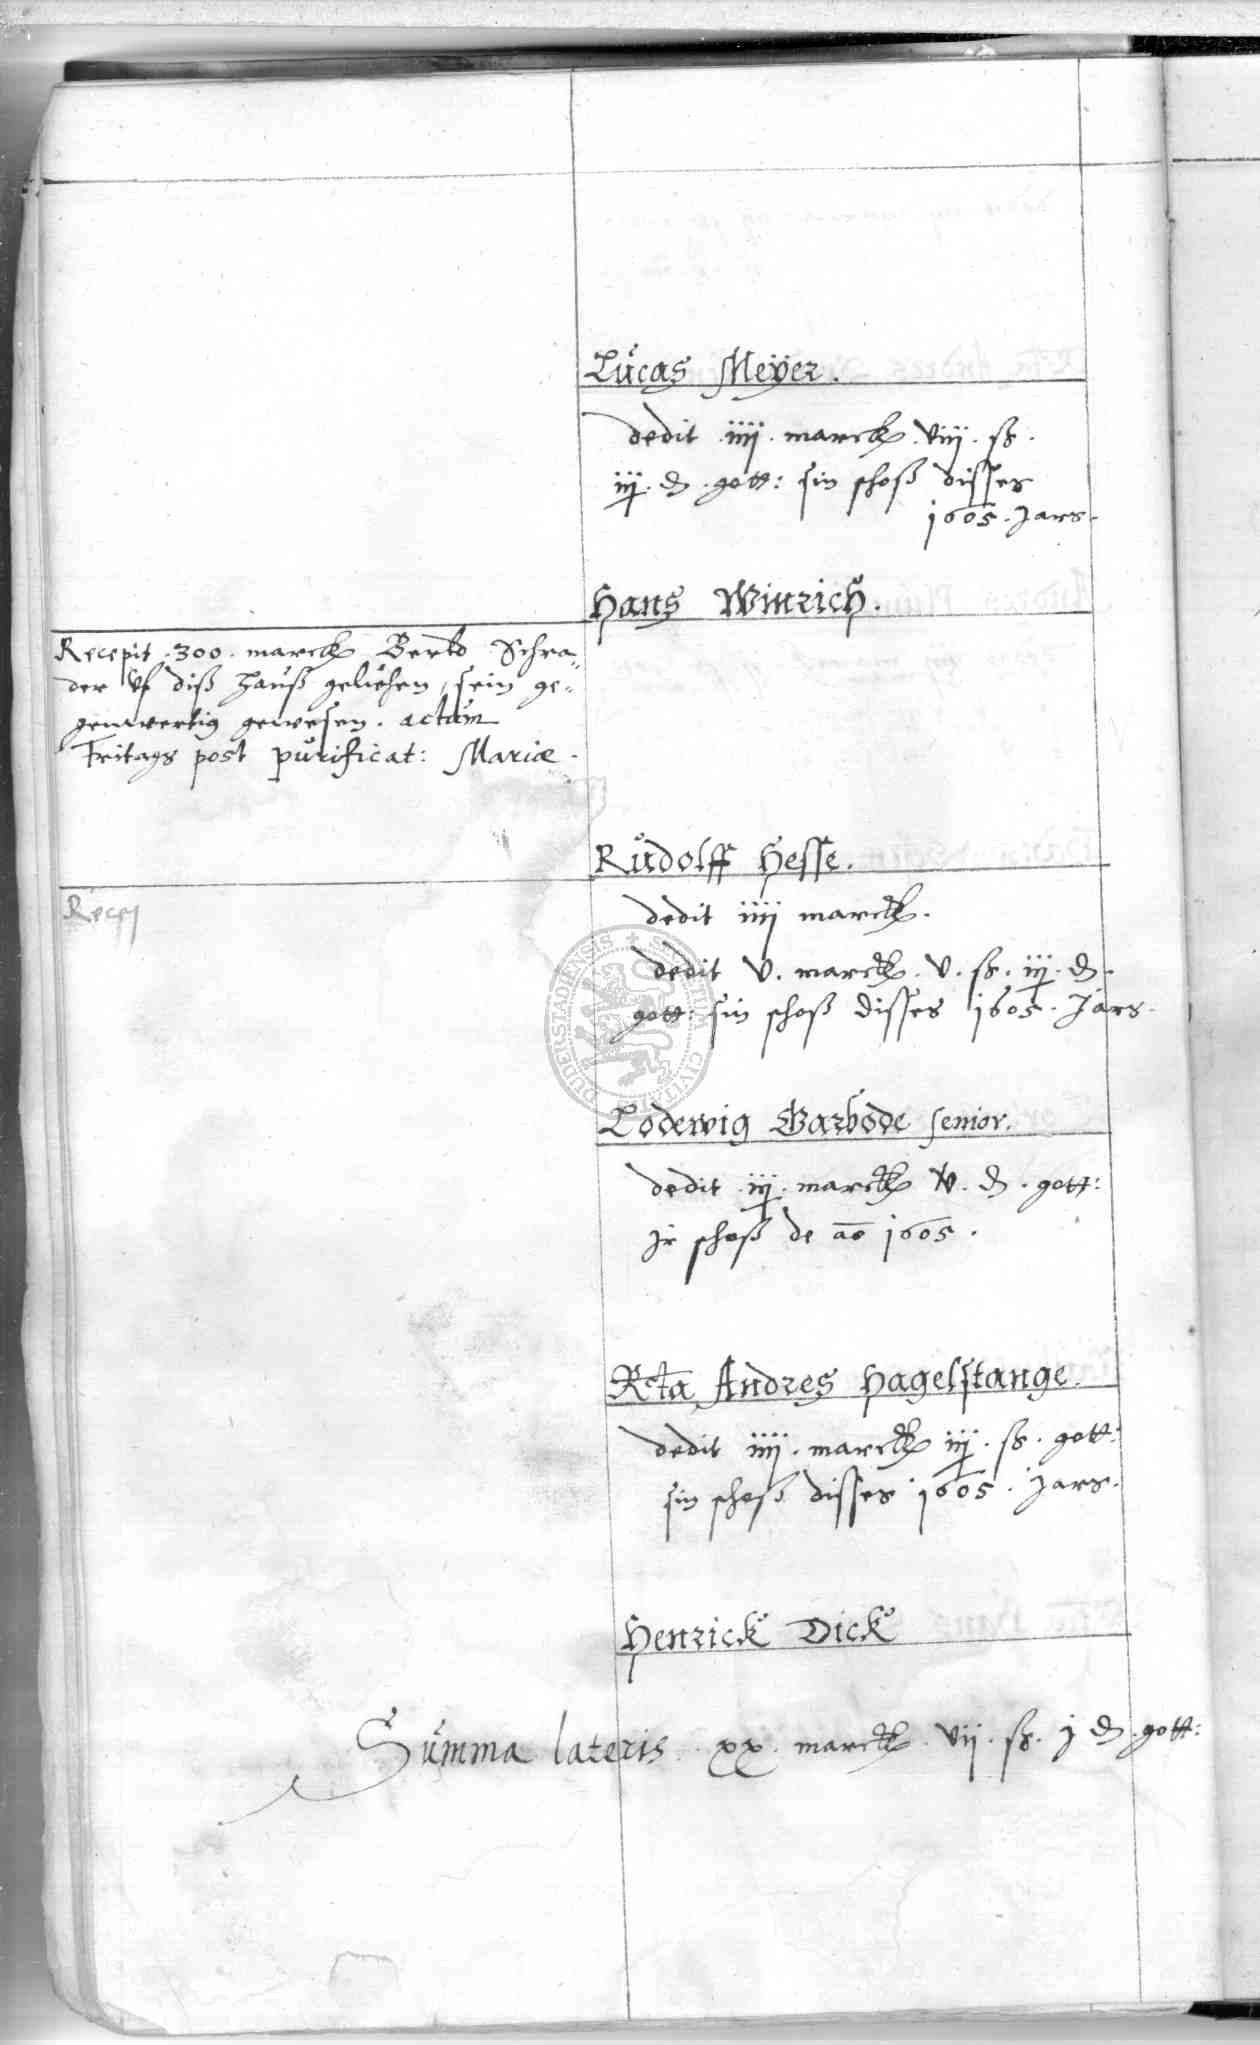 Lucas Meyer.
dedit .iiij. marck. viij. ß.
iij. d. gott: sin schoß disses
1605. Jars.
Hans Winrich.
Recepit .300. marck Bertd Schra=
der uf diß Hauß geliehen, sein ge=
genwertig gewesen. actum
Fritags post purificat: Mariæ.
Rudolff Hesse.
Recepi
dedit iiij marck.
dedit v. marck. v. ß. iij. d.
gott: sin schoß disses 1605. Jars.
SECRETUM CIVITATIS DUDERSTADENSIS
Lodewig Garbode senior.
dedit .iij. marck v. d. gott:
Ir schoß de ao 1605.
Rcta Andres Hagelstange.
dedit iiij. marck iij. ß. gott:
sin schoß disses 1605. Jars.
Henrick Dick
Summa lateris. xx. marck. vii. ß. j d. gott: